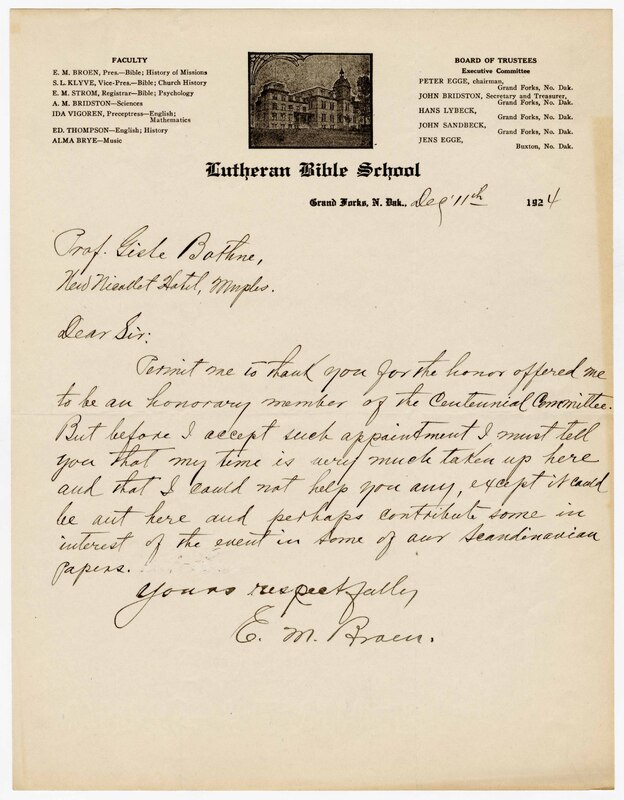 FACULTY
E. M. BROEN, Pres.—Bible; History of Missions
S. L. KLYVE, Vice-Pres.—Bible; Church History
E. M. STROM, Registrar—Bible; Psychology
A. M. BRIDSTON—Sciences
IDA VIGOREN, Preceptress—English;
Mathematics
ED. THOMPSON—English; History
ALMA BRYE—Music
BOARD OF TRUSTEES
Executive Committee
PETER EGGE, chairman,
Grand Forks, No. Dak.
JOHN BRIDSTON, Secretary and Treasurer,
Grand Forks, No. Dak.
HANS LYBECK,
Grand Forks, No. Dak.
JOHN SANDBECK,
Grand Forks, No. Dak.
JENS EGGE,
Buxton, No. Dak.
Lutheran Bible School
Grand Forks, N. Dak., Dec 11th 1924
Prof. Gisle Bothne,
New Nicollet Hotel, Mnpls.
Dear Sir:
Permit me to thank you for the honor offered me
to be an honorary member of the Centennial Committee.
But before I accept such appointment I must tell
you that my time is very much taken up here
and that I could not help you any, except it could
be out here and perhaps contribute some in
interest of the event in some of our Scandinavian
papers.
Yours respectfully
E. M. Broen.